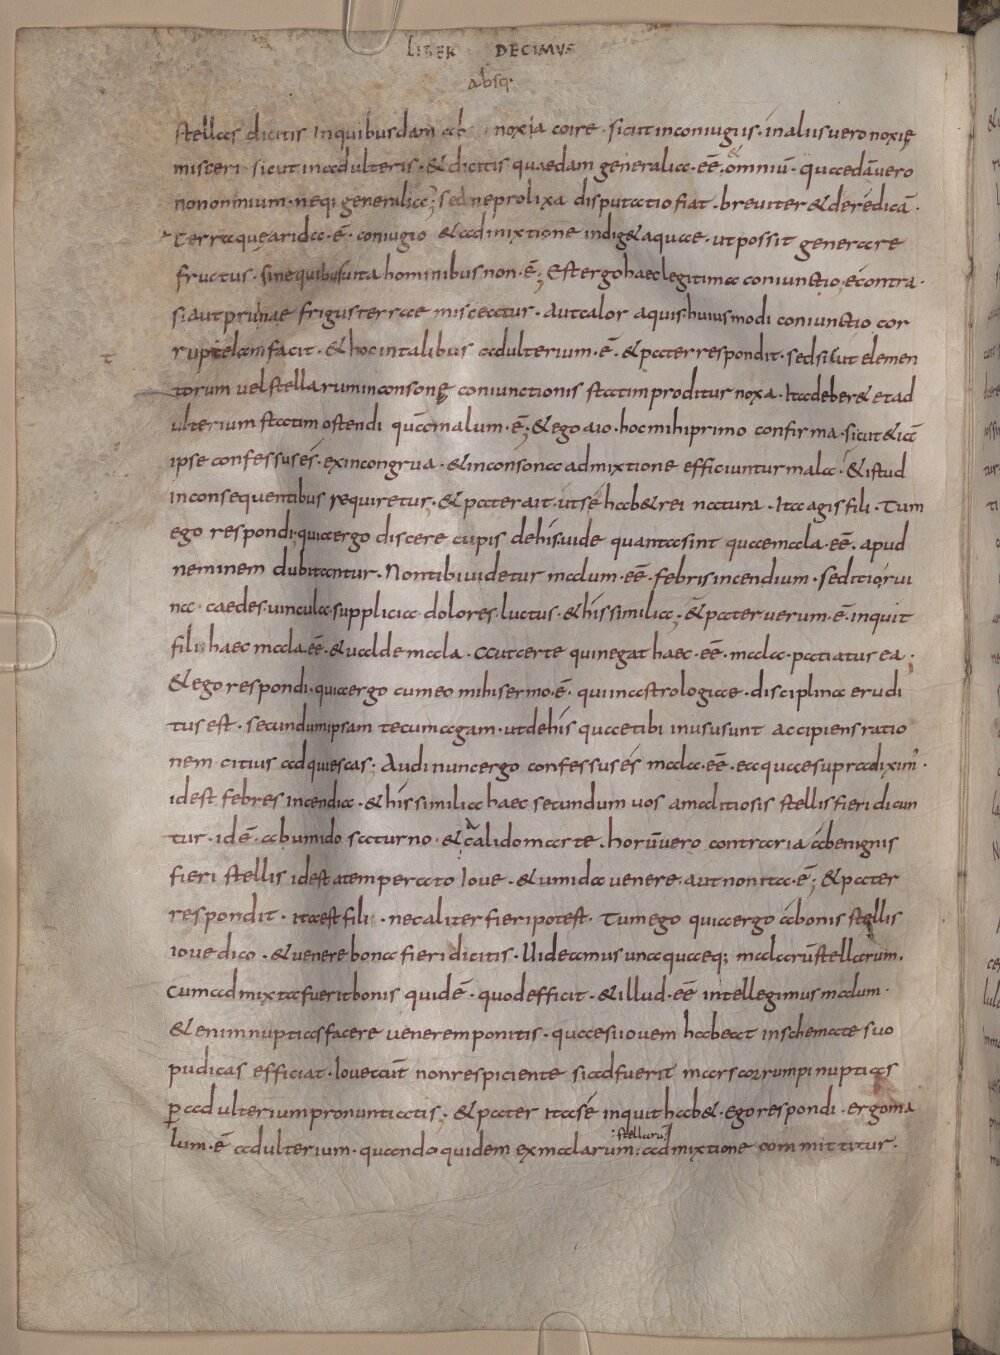 LIBER DECIMVS
absq.
stellas dicitis inquibusdam noxia coire · sicut inconiugiis · in aliis uero noxie
misceri · sicut inadulteris · & dicitis quaedam generalia · eē · & omniū · quaedā uero
non omnium · neq; generalia; sed ne prolixa disputatio fiat · breuiter & de re dicā ·
Terra quę arida · ē · coniugio & admixtione indig& aquae · ut possit generare
fructus · sine quibus uita hominibus non · ē; Est ergo haec legitima coniunctio, e contra ·
si aut pruinae frigus terrae misceatur · aut calor aquis huiusmodi coniunctio cor
ruptelam facit · & hoc in talibus adulterium · ē · & pater respondit · sed sicut elemen
torum uel stellarum inconsonę coniunctionis statim proditur noxa · Ita deber& et ad
ulterium statim ostendi quā malum · ē; & ego aio · hoc mihi primo confirma · sicut &iā
ipse confessus és · ex incongrua · & inconsona admixtione efficiuntur mala · & istud
in consequentibus requiretur · & pater ait · ut se hab& rei natura · Ita agis fili · Tum
ego respondi, quia ergo discere cupis de his uide quanta sint quae mala · eē · apud
neminem dubitantur · Non tibi uidetur malum · eē · febris incendium · seditio, rui
na · caedes · uincula · supplicia dolores · luctus · & his similia; & pater uerum · ē · inquit
fili haec mala · eē · & ualde mala · aut certe qui negat haec · eē · mala · patiatur ea;
& ego respondi · quia ergo cum eo mihi sermo · ē · qui in astrologiae · disciplina erudi
tus est · secundum ipsam tecum agam · ut de his quae tibi in usu sunt accipiens ratio
nem citius adquiescas; Audi nunc ergo confessus és mala · eē · ea quae supra dixim' ·
id est febres incendia · & his similia haec secundum uos a malitiosis stellis fieri dicun
tur · id ē · ab umido saturno · & calido marte · horū uero contraria a benignis
fieri stellis id est a temperato Ioue · & umida uenere · aut non ita · ē; & pater
respondit · ita est fili · nec aliter fieri potest · Tum ego quia ergo a bonis stellis
ioue dico · & uenere bona fieri dicitis · Uideamus unaquaeq; malarū stellarum ·
cum admixta fuerit bonis quid ē · quod efficit · & illud · eē intellegimus malum ·
& enim nuptias facere uenerem ponitis · quae si iouem habeat in schemate suo
pudicas efficiat · Ioue aut non respiciente si adfuerit mars corrumpi nuptias
p̱ adulterium pronuntiatis; & pater ita sé inquit hab& · ego respondi · ergo ma
lum · ē adulterium · quando quidem ex malarum : stellarū : admixtione committitur ·